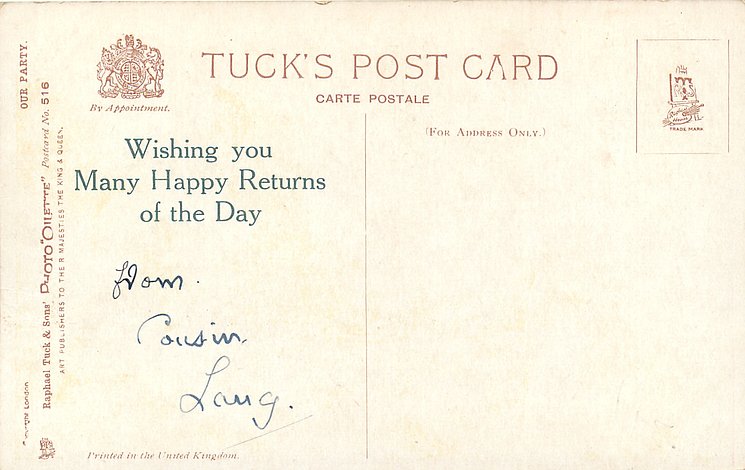 TUCK'S POST CARD
CARTE POSTALE
By Appointment.
(FOR ADDRESS ONLY.)
TRADE MARK
Wishing you
Many Happy Returns
of the Day
from.
Cousin
Printed in the United Kingdom.
OUR PARTY.
Raphael Tuck & Sons' PHOTO "OILETTE" Postcard No. 516
ART PUBLISHERS TO THEIR MAJESTIES THE KING & QUEEN.
London